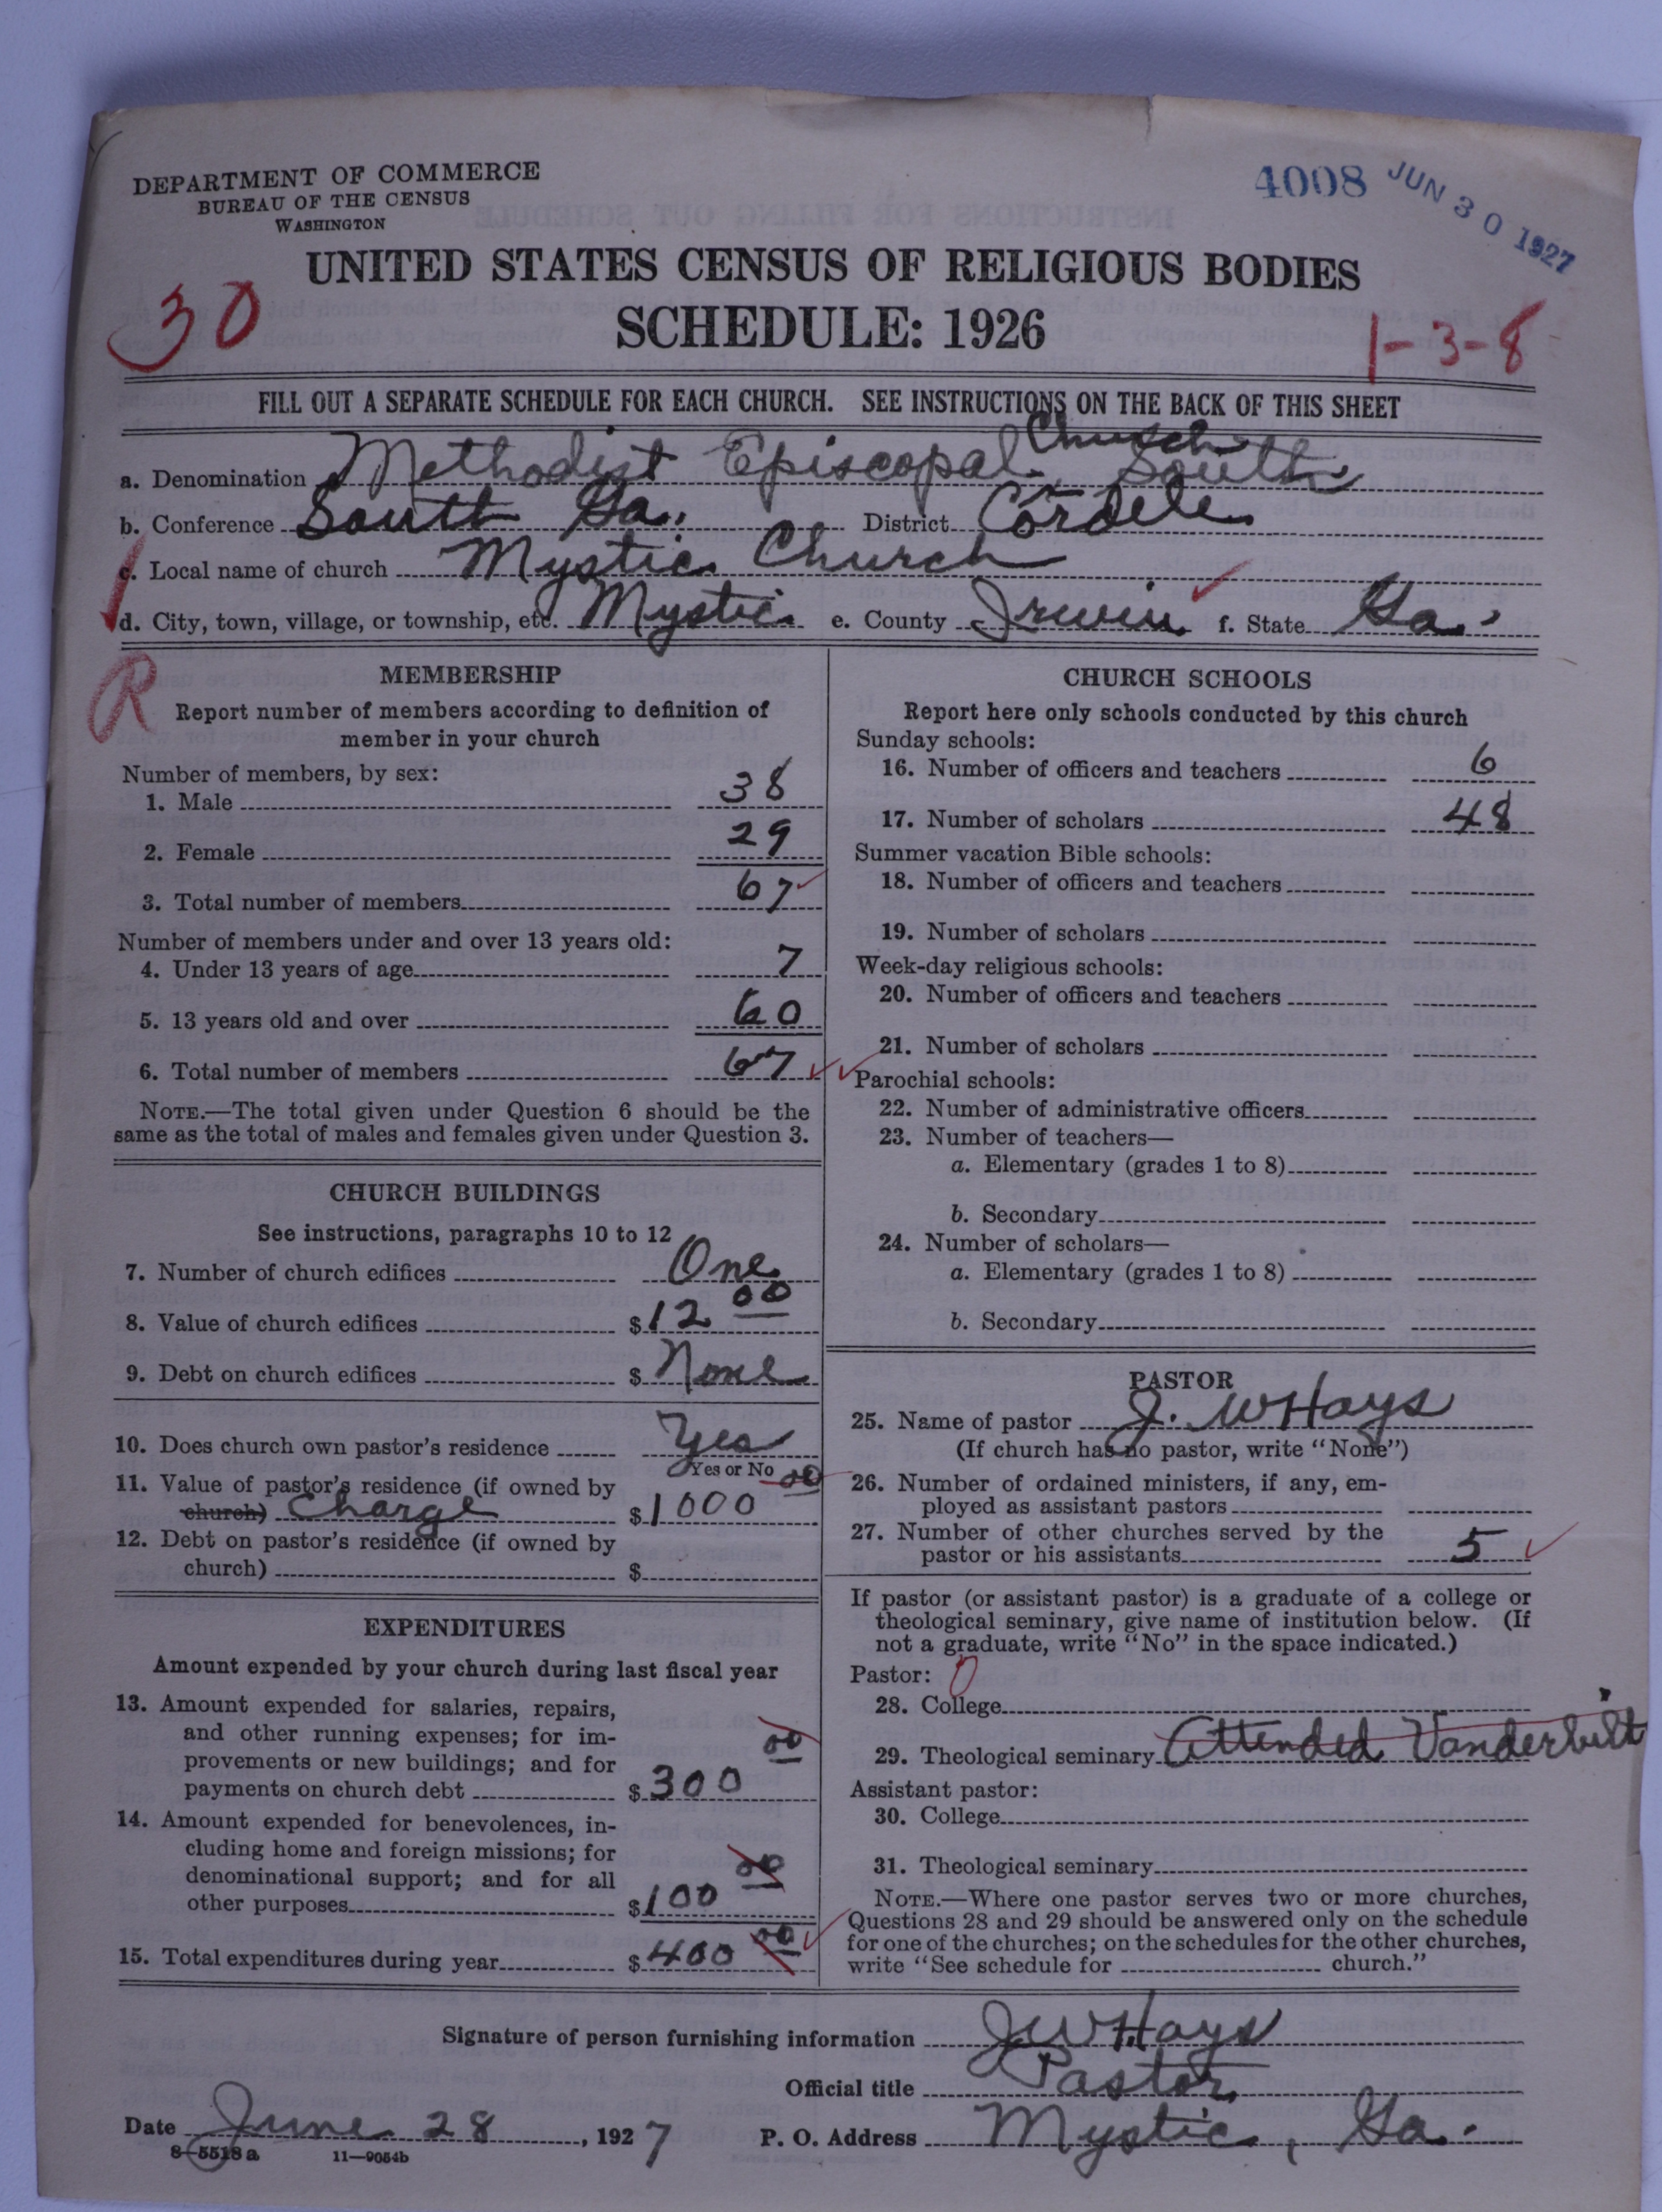 DEPARTMENT OF COMMERCE
BUREAU OF THE CENSUS
WASHINGTON
4008 JUN 30 1927
UNITED STATES CENSUS OF RELIGIOUS BODIES
SCHEDULE: 1926
30
1-3-8
FILL OUT A SEPARATE SCHEDULE FOR EACH CHURCH. SEE INSTRUCTIONS ON THE BACK OF THIS SHEET
a. Denomination Methodist Episcopal Church South
b. Conference South Ga. District Cordele
c. Local name of church Mystic Church
d. City, town, village, or township, etc. Mystic e. County Irwin f. State Ga.
R
MEMBERSHIP
Report number of members according to definition of
member in your church
Number of members, by sex:
1. Male 38
2. Female 29
3. Total number of members 67
Number of members under and over 13 years old:
4. Under 13 years of age 7
5. 13 years old and over 60
6. Total number of members 67
NOTE.—The total given under Question 6 should be the
same as the total of males and females given under Question 3.
CHURCH BUILDINGS
See instructions, paragraphs 10 to 12
7. Number of church edifices One
8. Value of church edifices $12 00
9. Debt on church edifices $ None
10. Does church own pastor's residence Yes
Yes or No
11. Value of pastor's residence (if owned by
church) Charge $1000 00
12. Debt on pastor's residence (if owned by
church) $
EXPENDITURES
Amount expended by your church during last fiscal year
13. Amount expended for salaries, repairs,
and other running expenses; for im-
provements or new buildings; and for
payments on church debt $300 00
14. Amount expended for benevolences, in-
cluding home and foreign missions; for
denominational support; and for all
other purposes $100 00
15. Total expenditures during year $400 00
CHURCH SCHOOLS
Report here only schools conducted by this church
Sunday schools:
16. Number of officers and teachers 6
17. Number of scholars 48
Summer vacation Bible schools:
18. Number of officers and teachers
19. Number of scholars
Week-day religious schools:
20. Number of officers and teachers
21. Number of scholars
Parochial schools:
22. Number of administrative officers
23. Number of teachers—
a. Elementary (grades 1 to 8)
b. Secondary
24. Number of scholars—
a. Elementary (grades 1 to 8)
b. Secondary
PASTOR
25. Name of pastor J. W Hays
(If church has no pastor, write "None")
26. Number of ordained ministers, if any, em-
ployed as assistant pastors
27. Number of other churches served by the
pastor or his assistants 5
If pastor (or assistant pastor) is a graduate of a college or
theological seminary, give name of institution below. (If
not a graduate, write "No" in the space indicated.)
Pastor: 0
28. College
29. Theological seminary Attended Vanderbilt
Assistant pastor:
30. College
31. Theological seminary
NOTE.—Where one pastor serves two or more churches,
Questions 28 and 29 should be answered only on the schedule
for one of the churches; on the schedules for the other churches,
write "See schedule for church."
Signature of person furnishing information J W Hays
Official title Pastor
Date June 28, 1927 P. O. Address Mystic, Ga.
8-5518a 11-9054b